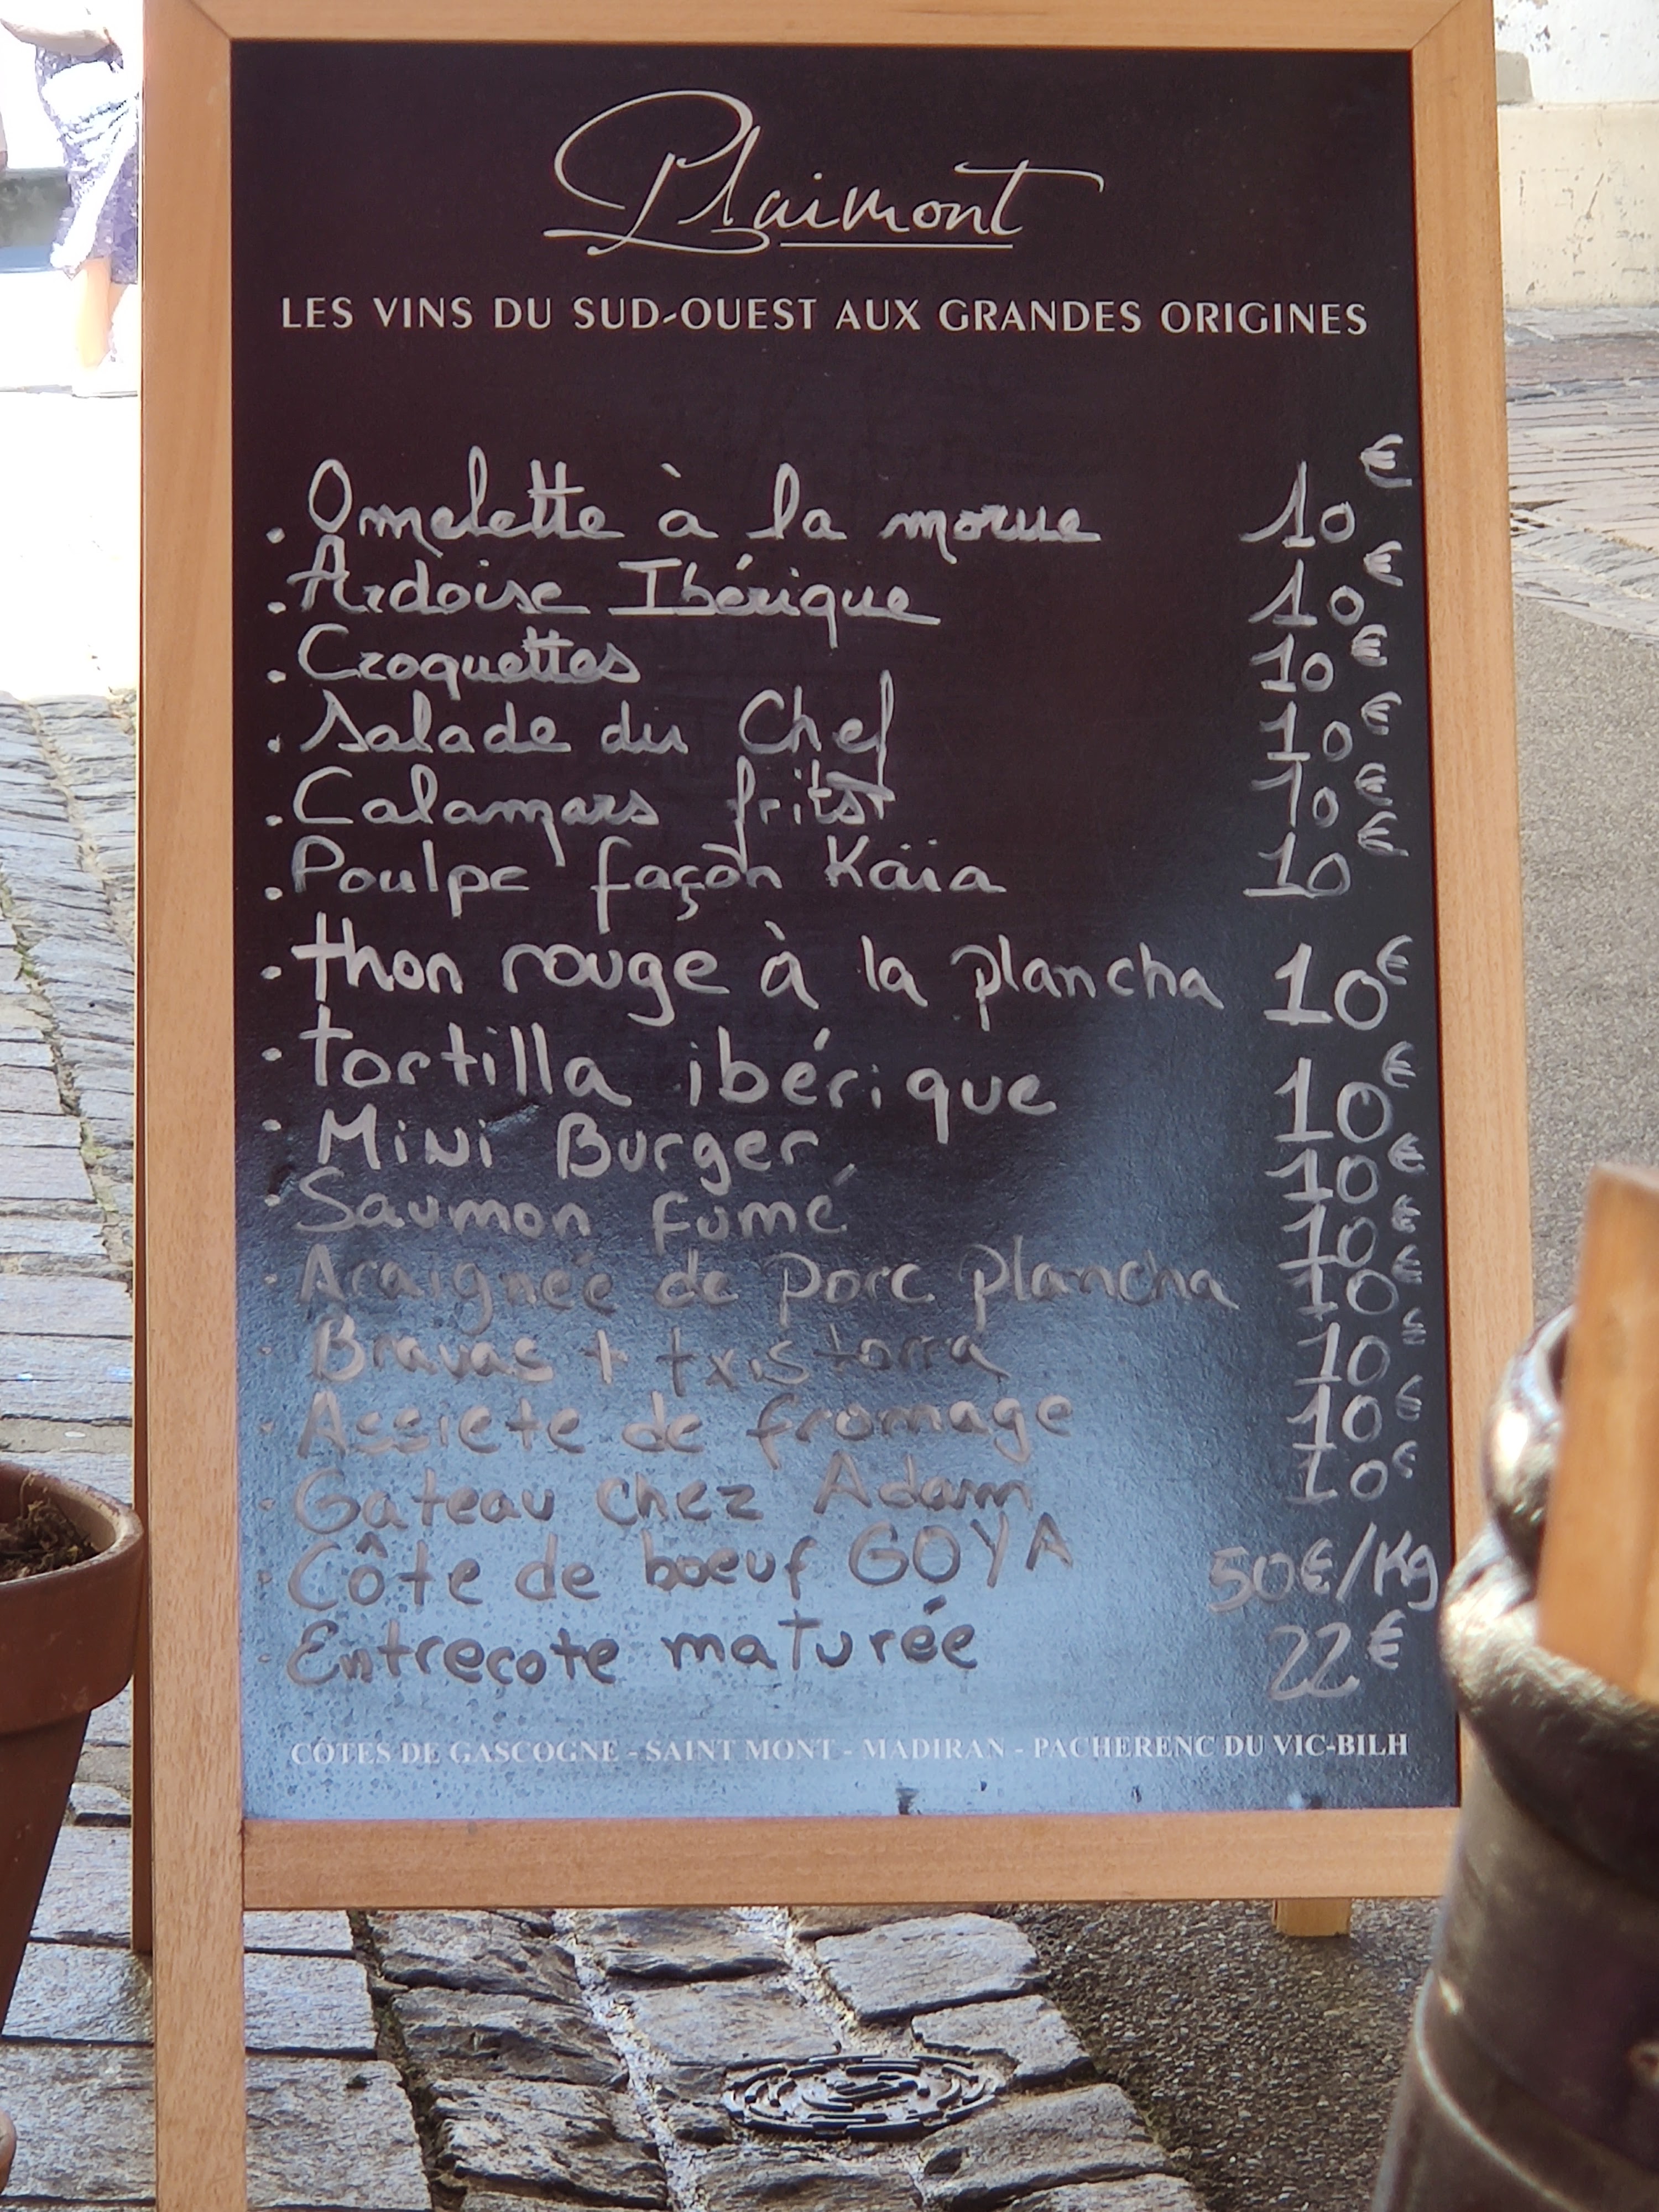 Plaimont
LES VINS DU SUD-OUEST AUX GRANDES ORIGINES
. Omelette à la morue 10€
. Ardoise Ibérique 10€
. Croquettes 10€
. Salade du Chef 10€
. Calamars frits 10€
. Poulpe façon Kaïa 10€
. thon rouge à la plancha 10€
. tortilla ibérique 10€
. Mini Burger 10€
. Saumon fumé 10€
. Araignée de porc plancha 10€
. Bravas + txistorra 10€
. Assiete de fromage 10€
. Gateau chez Adam 10€
. Côte de boeuf GOYA 50€/Kg
. Entreçote maturée 22€
CÔTES DE GASCOGNE - SAINT MONT - MADIRAN - PACHERENC DU VIC-BILH